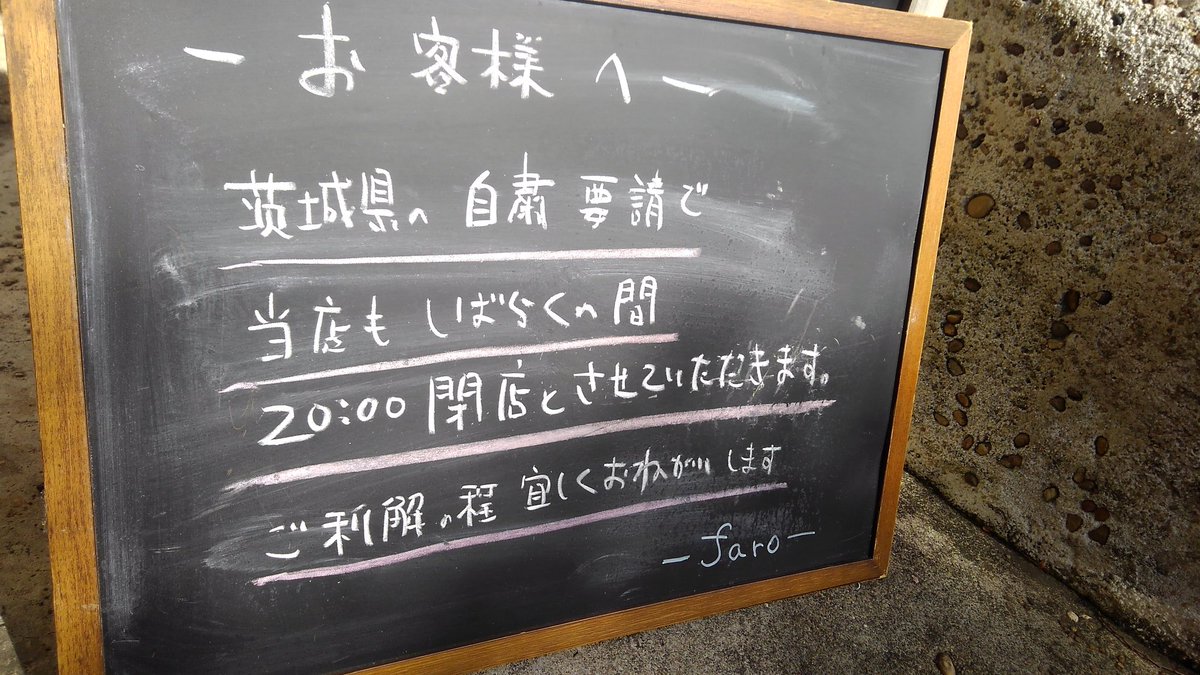 －お客様へ－
茨城県の自粛要請で
当店もしばらくの間
20:00閉店とさせていただきます。
ご利解の程宜しくおねがいします
－faro－